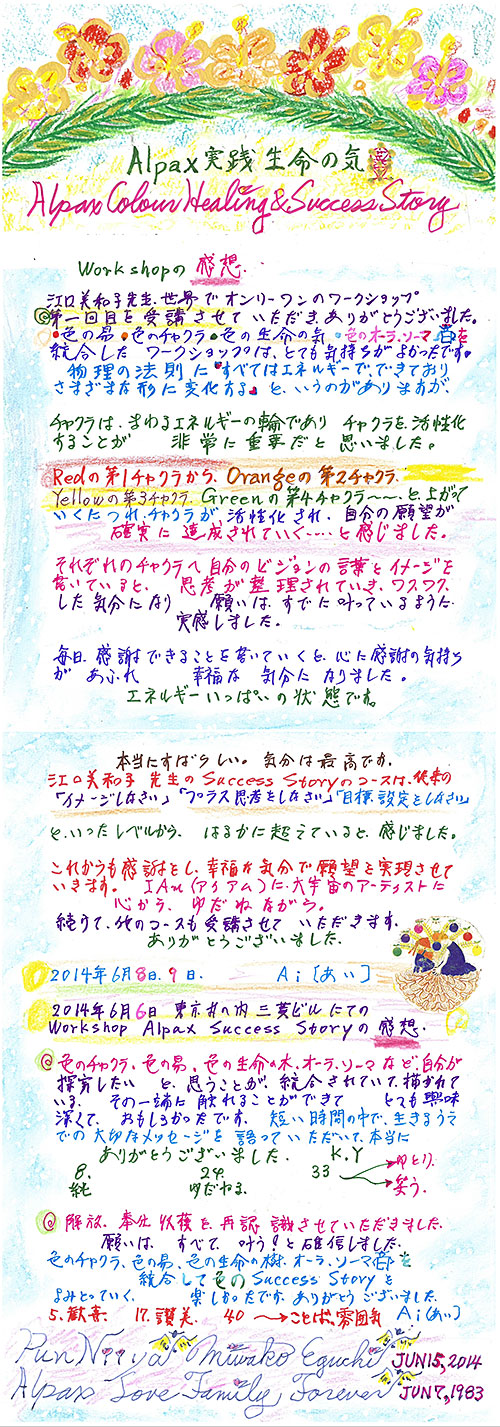 Alpax 実践 生命の気
Alpax Colour Healing & Success Story
Workshopの 感想..
江口美和子先生、世界で オンリーワンのワークショップ
第一回目を受講させて いただき、ありがとうございました。
・色の易・色のチャクラ・色の生命の気・色のオーラ、ソーマ 香を
統合した ワークショップは、とても気持ちがよかったです。
物理の法則に "すべてはエネルギーで、できており
さまざまな形に変化する" と、いうのがありますが
チャクラは、まわるエネルギーの輪であり チャクラを、活性化
することが 非常に重要だと思いました。
Redの第1チャクラから、Orangeの第2チャクラ、
Yellowの第3チャクラ、Greenの第4チャクラ〜〜、と上がって
いくにつれ、チャクラが、活性化され、自分の願望が
確実に 達成されていく……と感じました。
それぞれのチャクラへ自分のビジョンの言葉とイメージを
書いていると、思考が整理されていき、ワクワク
した気分になり 願いは、すでに叶っているように
実感しました。
毎日、感謝できることを書いていくと、心に感謝の気持ち
が あふれ 幸福な 気分に なりました。
エネルギーいっぱいの状態です。
本当にすばらしい。気分は最高です。
江口美和子 先生の Success Storyのコースは、従来の
「イメージしなさい」「プラス思考をしなさい」「目標設定をしなさい」
と、いったレベルから、はるかに超えていると、感じました。
これからも感謝をし、幸福な気分で願望を実現させて
いきます。 I Am (アイアム)に、大宇宙のアーティストに
心から、ゆだねながら。
続けて、他のコースも受講させて いただきます。
ありがとうございました。
2014年6月8日、9日. Ai [あい]
2014年6月6日 東京丸の内 三菱ビル にての
Workshop Alpax Success Storyの 感想.
色のチャクラ、色の易、色の生命の木、オーラ、ソーマ など、自分が
探究したい と、思うことが、統合されていて、描かれて
いる、その一端に 触れることができて とても興味
深くて、おもしろかったです。短い時間の中で、生きるうえ
での 大切なメッセージを 語って いただいて、本当に
ありがとうございました. K.Y
8. 24. 33 → ゆとり.
純 ゆだねる. → 笑う.
解放、奉仕、収穫を、再認識させていただきました.
願いは、すべて、叶う!と確信しました.
色のチャクラ、色の易、色の生命の樹、オーラ、ソーマ香を
統合して 色の Success Storyと
よみとっていく、楽しかったです。ありがとうございました.
5. 歓喜. 17. 讃美. 40 → ことば、雰囲気 Ai(あい)
Pun Niiya Miwako Eguchi JUN15, 2014
Alpax Love Family, Forever JUN7, 1983